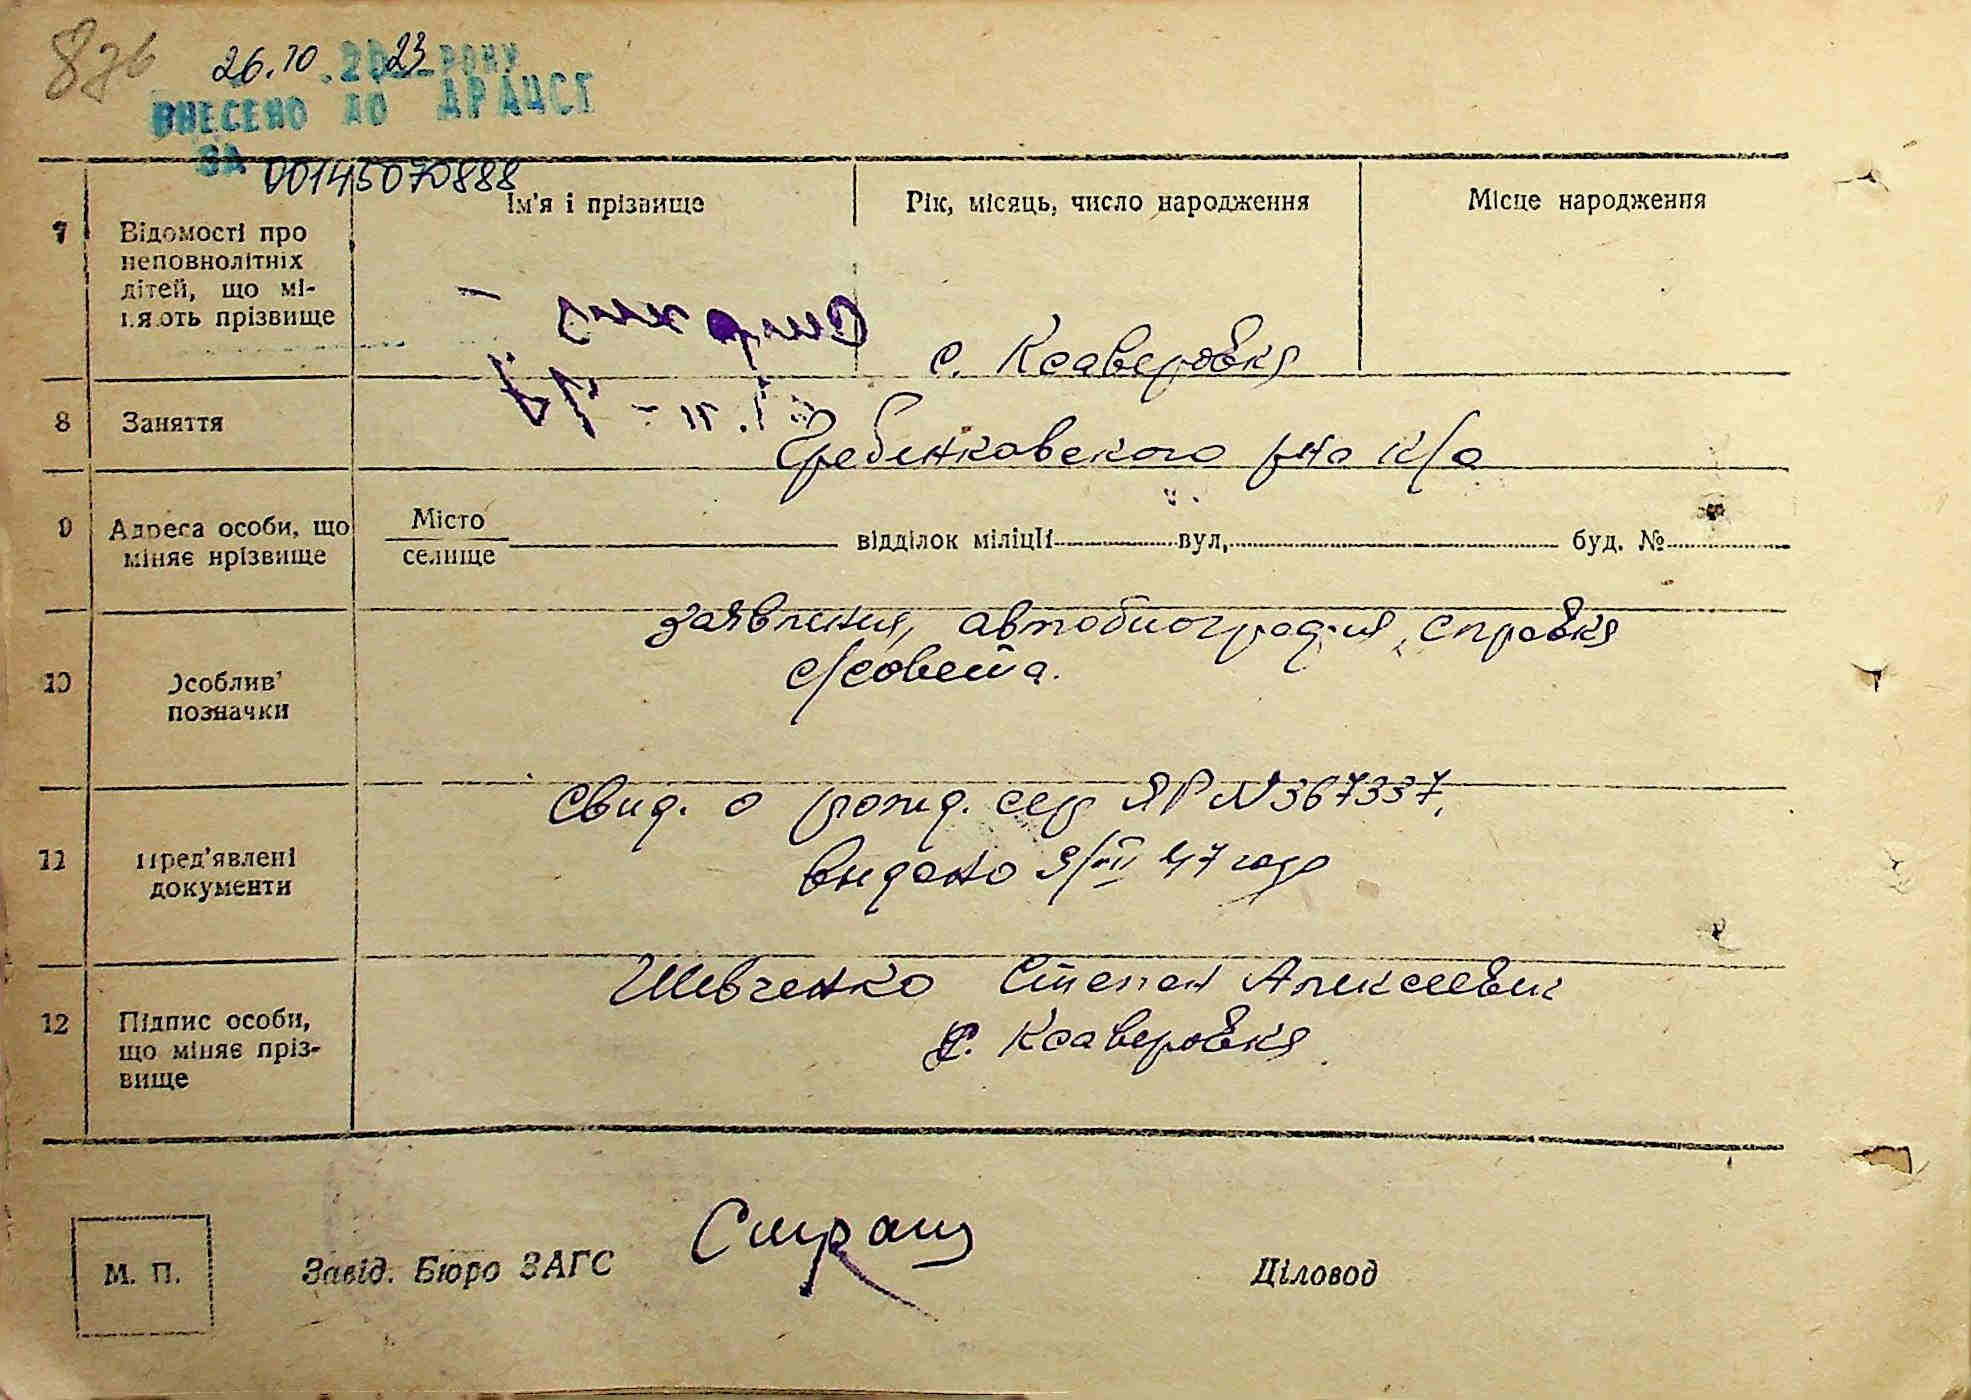 876
26.10.2023 РОКУ
ВНЕСЕНО ДО ДРАЦСГ
ЗА 00145070888
Ім'я і прізвище
Рік, місяць, число народження
Місце народження
7
Відомості про
неповнолітніх
дітей, що мі-
няють прізвище
с. Ксаверовка
8
Заняття
Гребенковского р-на к/о
9
Адреса особи, що
міняє прізвище
Місто
селище
відділок міліції
вул.
буд. №
10
Особливі
позначки
заявления, автобиография, справка
с/совета.
11
Пред'явлені
документи
Свид. о рожд. сер ЯР № 367337,
видано 9/III 47 года
12
Підпис особи,
що міняє пріз-
вище
Шевченко Степан Алексеевич
с. Ксаверовка
М. П.
Завід. Бюро ЗАГС
Діловод